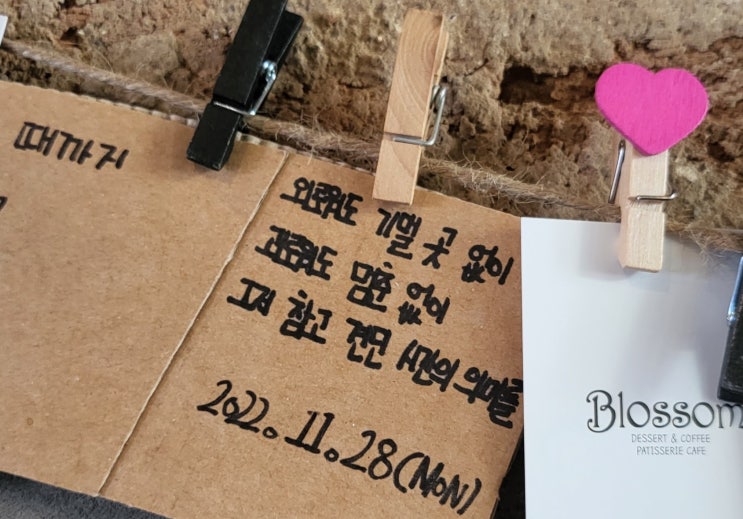 때까지
외로워도 기댈 곳 없이
괴로워도 멈춤 없이
그저 참고 견딘 시간의 의미를
2022.11.28(MON)
Blossom
DESSERT & COFFEE
PATISSERIE CAFE